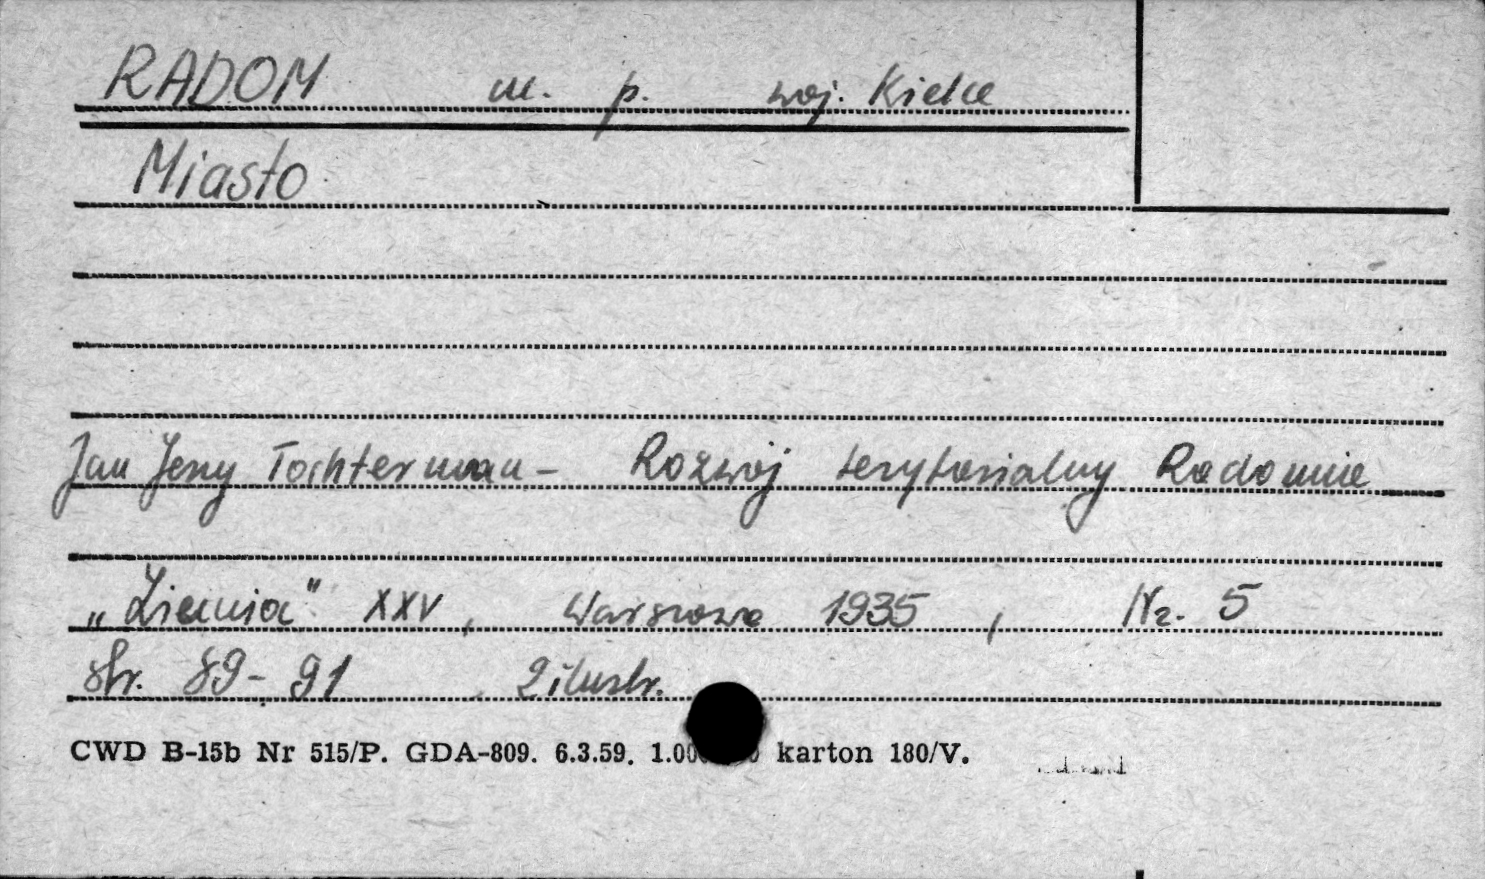 RADOM m. p. woj. Kielce
Miasto
Jan Jerzy Tochterman - Rozwój terytorialny Radomia
„Ziemia" XXV, Warszawa 1935, Nr. 5
str. 89-91 2 ilustr.
CWD B-15b Nr 515/P. GDA-809. 6.3.59. 1.00 karton 180/V.